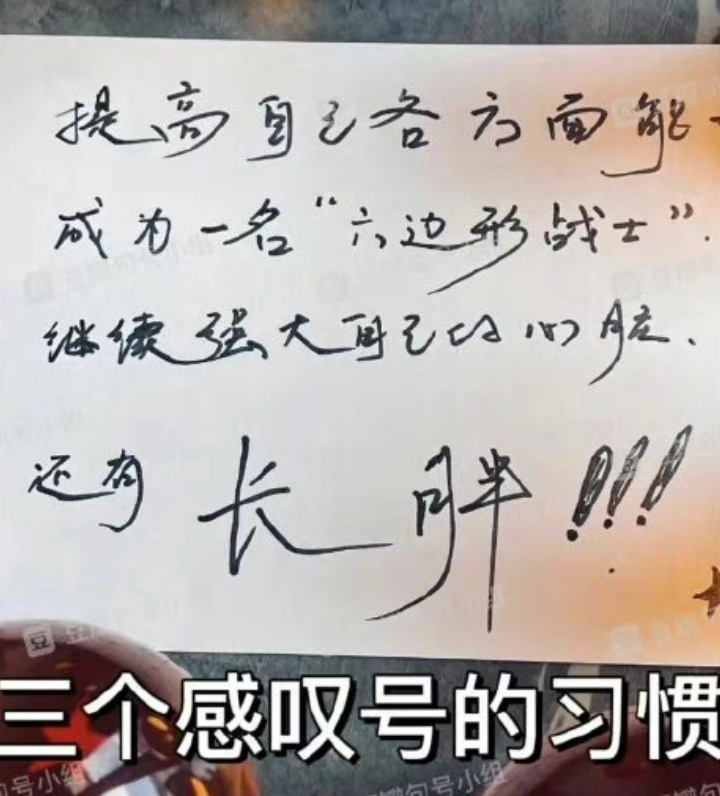 提高自己各方面能
成为一名“六边形战士”.
继续强大自己的心脏、
还有 长胖!!!
三个感叹号的习惯